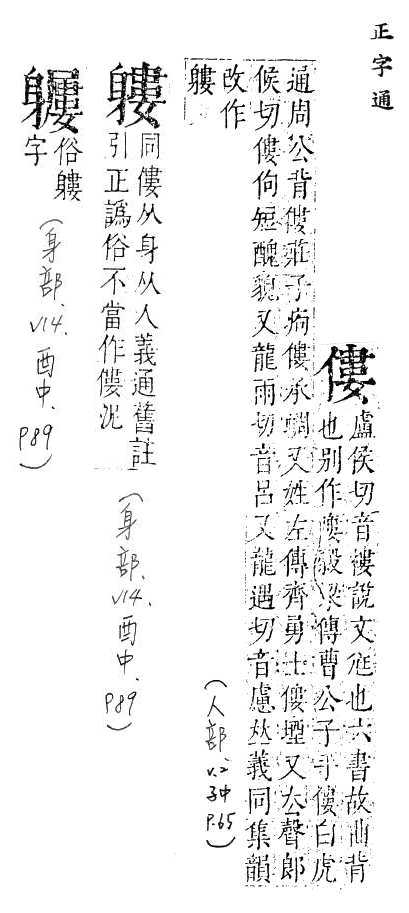 正字通
僂
盧侯切音褸說文尫也六書故曲背
也別作穀梁傳曹公子手僂白虎
通周公背僂莊子痀僂承蜩又姓左傳齊勇士僂堙又去聲郎
候切僂佝短醜貌又龍雨切音呂又龍遇切音慮𠀤義同集韻
改作
軁
(人部
v.2
子中
P.65)
軁
同僂从身从人義通舊註
引正譌俗不當作僂泥
(身部、v14.酉中.P89)
俗軁
字
(身部、v14.酉中.P89)